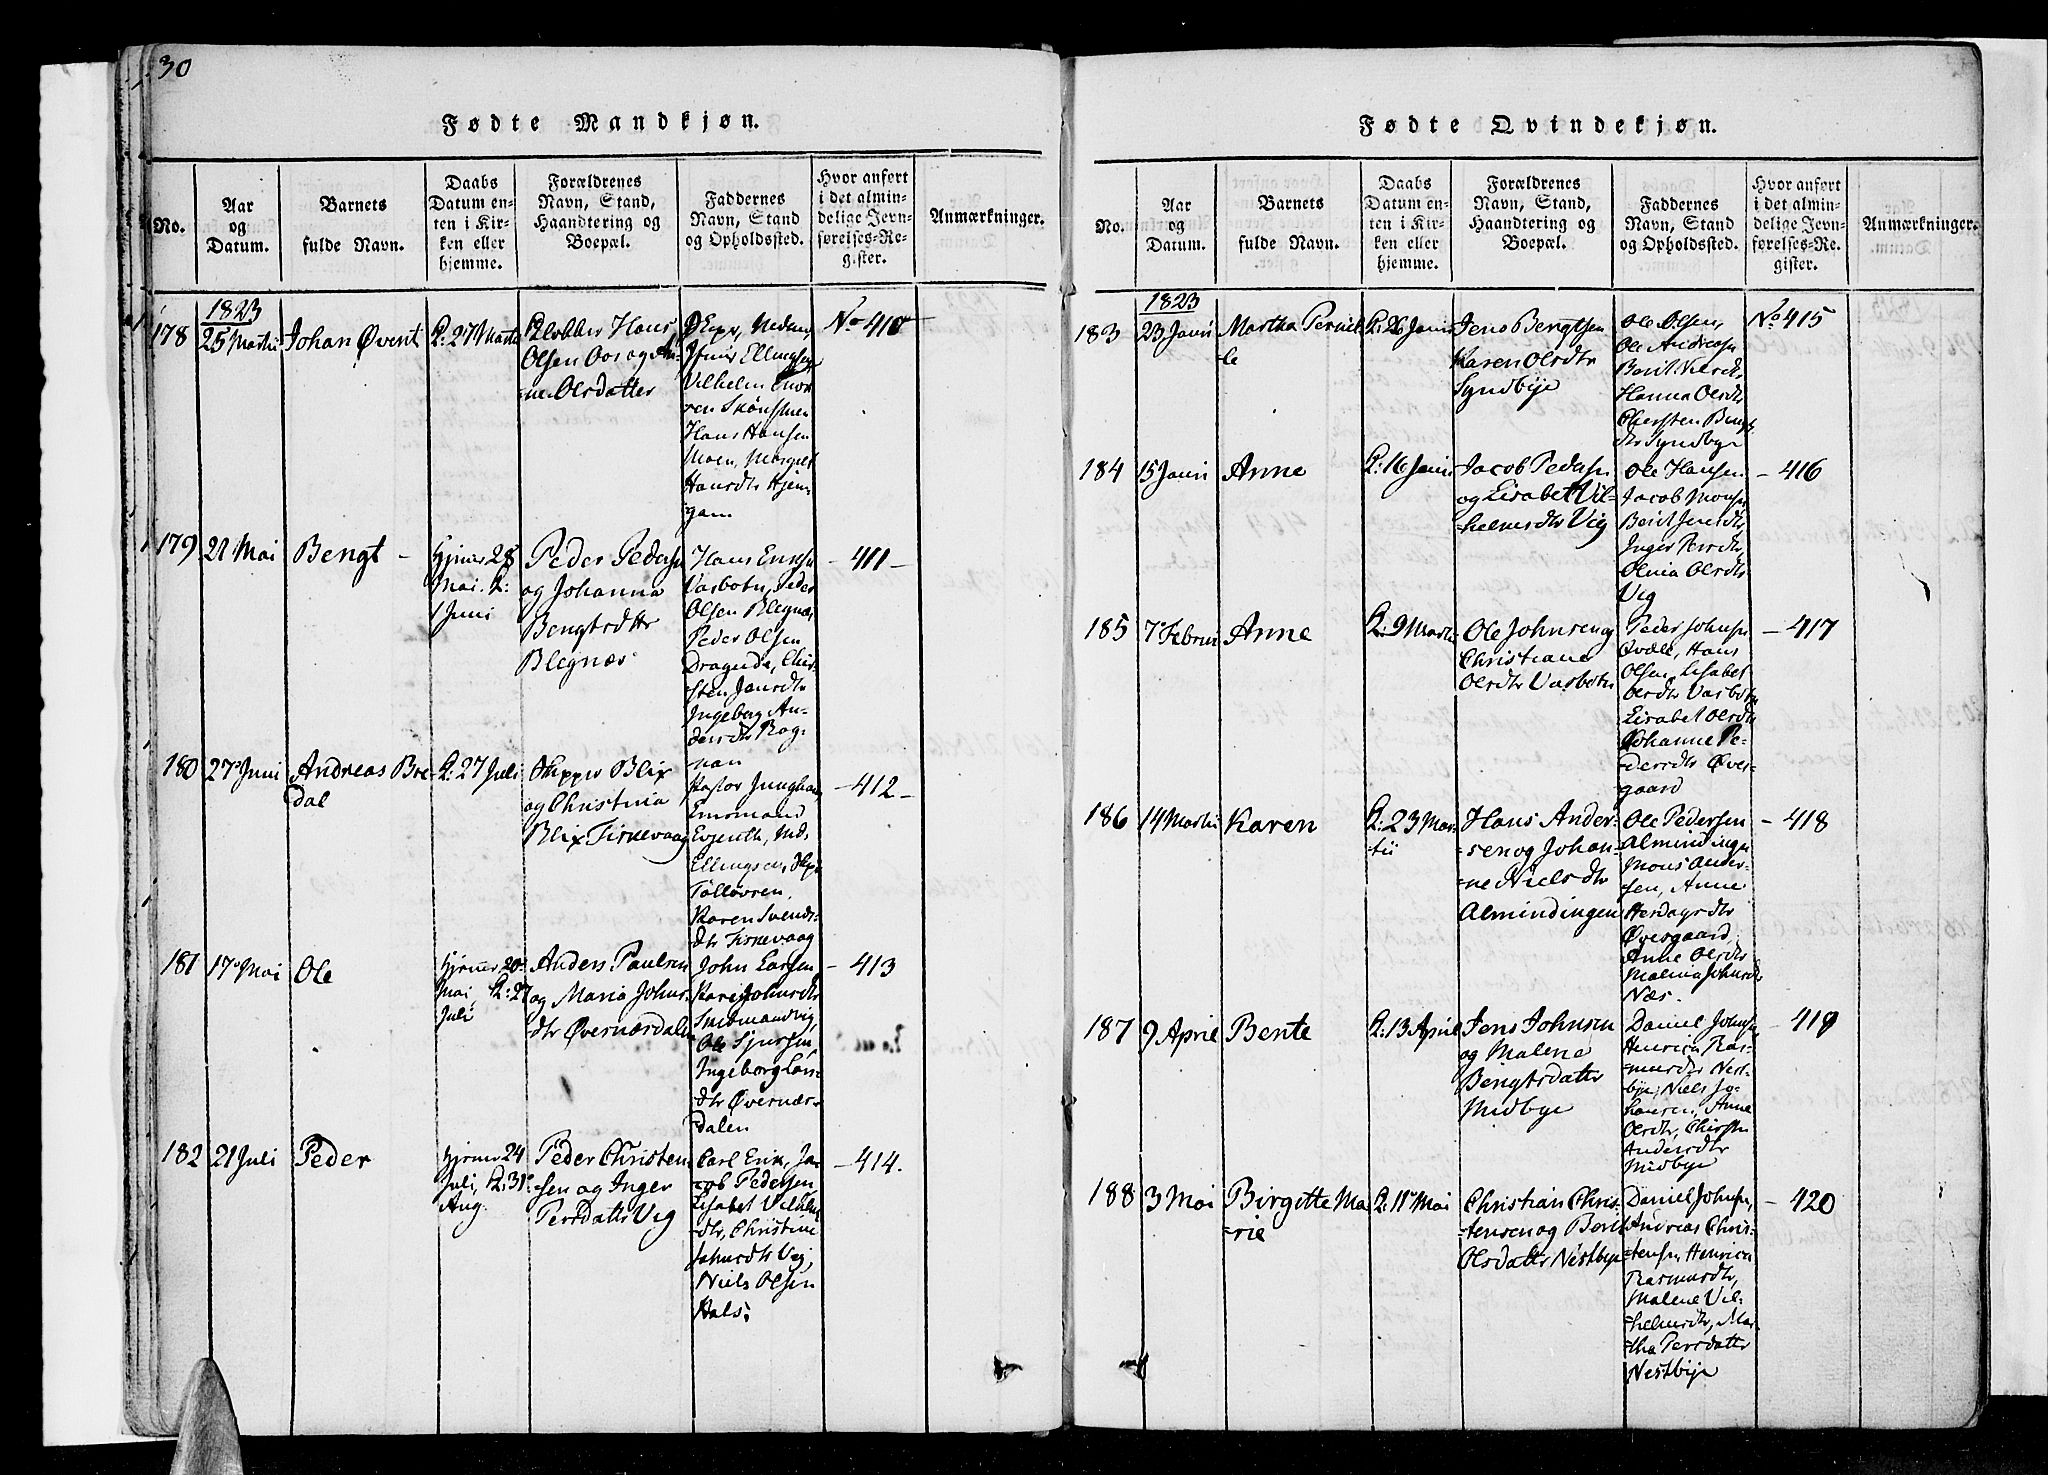 30
Fødte Mandkjøn.
No.
Aar
og
Datum.
Barnets
fulde Navn.
Daabs
Datum en-
ten i Kir-
ken eller
hjemme.
Forældrenes
Navn, Stand,
Haandtering og
Boepæl.
Faddernes
Navn, Stand
og Opholdssted.
Hvor anført
i det almin-
delige Jevn-
førelses-Re-
gister.
Anmærkninger.
1823
178
25 Martii
Johan Øvent
K: 27 Martii
Klokker Hans
Olsen Oos og An-
ne Olsdatter
Vilhelm
Hans Hansen
Moen, Margret
Hansdtr Hjem-
gam
No 410
179
21 Mai
Bengt -
Hjemme 28
Mai. K:
1 Juni
Peder Pedersen
og Johanna
Bengtsdttr
Blegnæs
Hans
Vasbotn, Peder
Olsen Blegnæs
Peder Olsen
Dragude, Chir-
sten Jansdtr
Ingeborg An-
dersdtr Rog-
nan
- 411 -
180
27 Juni
Andreas Bre-
dal
K: 27 Juli
Skipper Blix
og Christina
Blix Fiskevaag
Pastor Junghans,
Evjenth, Md.
Ellingsen,
Karen Svends-
dtr Fiskevaag
- 412 -
181
17 Mai
Ole
Hjemme 20
Mai, K: 27
Juli
Anders Paulsen
og Maria Johns-
dtr Øvernæsdalen
John Larsen,
Kari Johnsdtr
Ole Sjursen,
Ingeborg Lars-
dtr Øvernæs-
dalen
- 413
182
21 Juli
Peder
Hjemme 24
Juli, K: 31
Aug.
Peder Christen-
sen og Inger
Persdattr Vig
Carl Erik, Ja-
cob Pedersen
Lisabet Vilhelms-
dtr, Christine
Johnsdtr Vig,
Niels Olsen
Hals.
- 414.
Fødte Qvindekjøn.
No.
Aar
og
Datum.
Barnets
fulde Navn.
Daabs
Datum en-
ten i Kir-
ken eller
hjemme.
Forældrenes
Navn, Stand,
Haandtering og
Boepæl.
Faddernes
Navn, Stand
og Opholdssted.
Hvor anført
i det almin-
delige Jevn-
førelses-Re-
gister.
Anmærkninger.
1823
183
23 Janri
Martha Pernil-
le
K: 26 Janri
Jens Bengtsen
Karen Olsdtr
Syndbye
Ole Olsen,
Ole Andreasen
Berit Nilsdtr
Hanna Olsdtr
Chersten Bengts-
dtr Syndbye
No 415
184
15 Janri
Anne
K: 16 Janri
Jacob Pedersen
og Lisabet Vil-
helmsdtr Vig
Ole Hansen
Jacob Monsen
Berit Jensdtr
Inger Persdtr,
Olina Olsdtr
Vig
- 416
185
7 Februar
Anne
K: 9 Martii
Ole Johnsen og
Christiane
Olsdtr Vasbotn
Peder Johnsen
Qvale, Hans
Olsen, Lisabet
Olsdtr Vasbotn
Lisabet Olsdtr
Johanne Pe-
dersdtr Øves-
gaard
- 417
186
14 Martii
Karen
K: 23 Mar-
tii
Hans Ander-
sen og Johan-
ne Nielsdtr
Almindingen
Ole Pedersen
Almindingen
Mons Ander-
sen, Anne
Herdagsdtr
Øvesgaard,
Anne Olsdtr
Malena Johnsdtr
Næs.
- 418
187
9 April
Bente
K: 13 April
Jens Johnsen
og Malene
Bengtsdattr
Midbye
Daniel Johnsen
Henrica Ras-
musdtr Nest-
bye, Niels Jo-
hansen, Anne
Olsdtr, Chirsten
Andersdtr
Midbye
- 419
188
3 Mai
Birgitte Ma-
rie
K: 11 Mai
Christian Chris-
tensen og Berit
Olsdattr Nestbye
Daniel Johnsen,
Andreas Chris-
tensen, Henrica
Rasmusdtr,
Malene Vil-
helmsdtr, Mar-
tha Persdattr
Nestbye
- 420